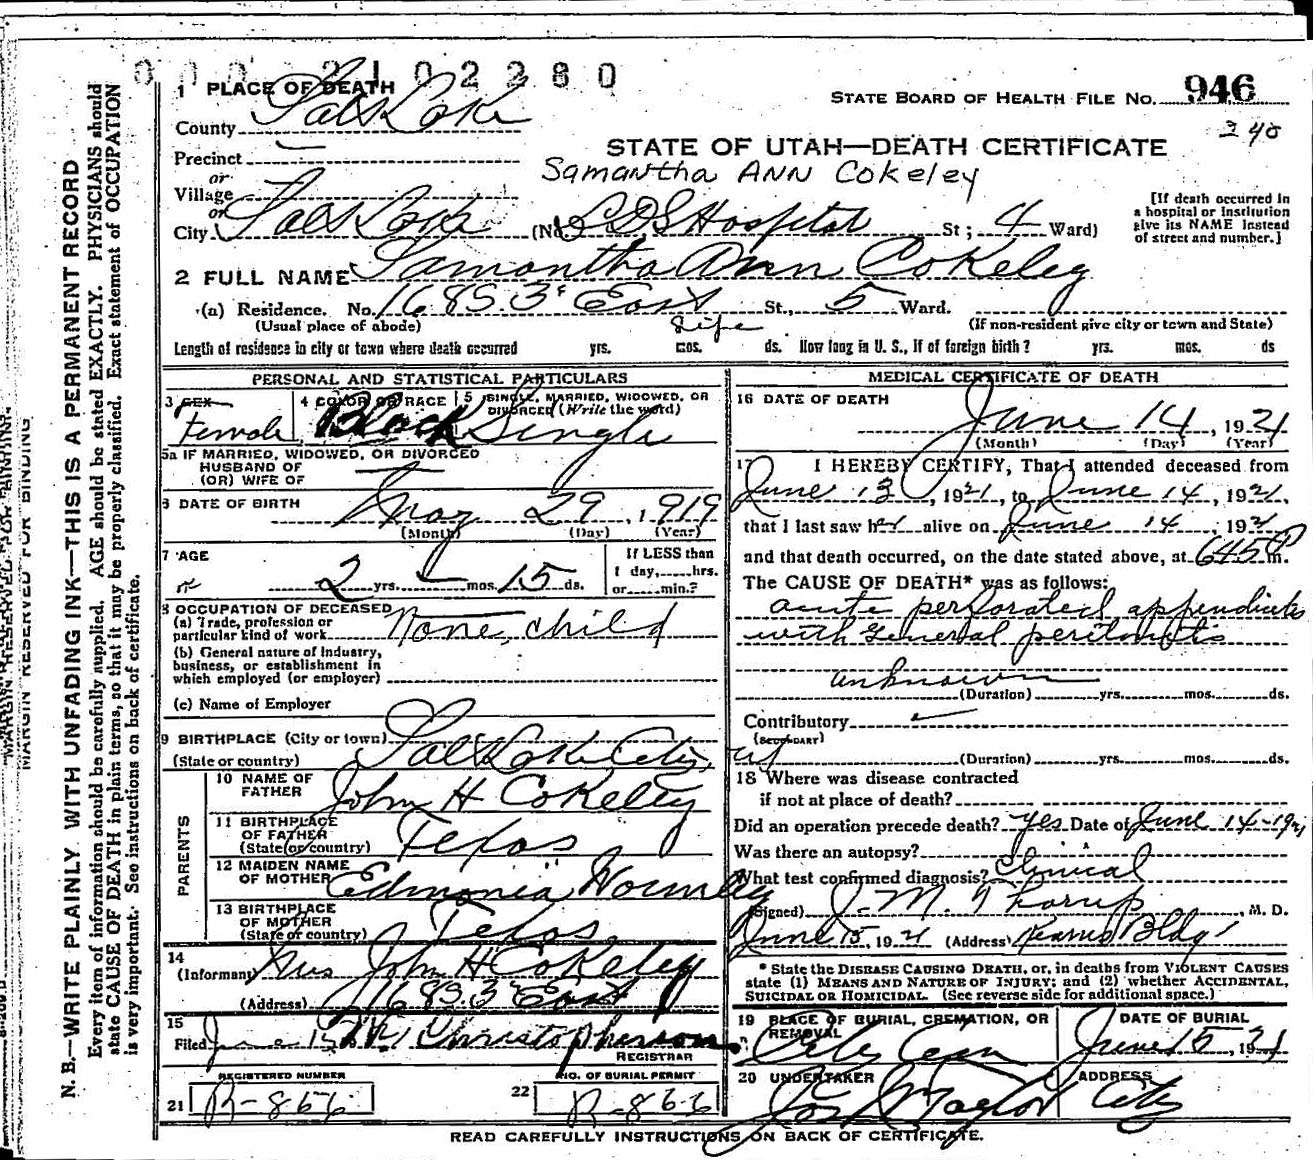 0002102280
1 PLACE OF DEATH
County Salt Lake
STATE BOARD OF HEALTH FILE NO. 946
240
STATE OF UTAH—DEATH CERTIFICATE
Samantha Ann Cokeley
Precinct
or
Village
or
City Salt Lake (No. LDS Hospital St; 4 Ward)
[If death occurred in a hospital or Institution give its NAME instead of street and number.]
2 FULL NAME Samantha Ann Cokeley
(a) Residence. No. 168 S. 3d East St., 5 Ward.
(Usual place of abode) (If non-resident give city or town and State)
Life
Length of residence in city or town where death occurred yrs. mos. ds. How long in U. S., if of foreign birth? yrs. mos. ds
PERSONAL AND STATISTICAL PARTICULARS
3 SEX Female
4 COLOR OR RACE Black
5 SINGLE, MARRIED, WIDOWED, OR DIVORCED (Write the word) Single
5a IF MARRIED, WIDOWED, OR DIVORCED
HUSBAND OF
(OR) WIFE OF
6 DATE OF BIRTH May 29, 1919
(Month) (Day) (Year)
7 AGE 2 yrs. — mos. 15 ds.
If LESS than
1 day, hrs.
or min.?
8 OCCUPATION OF DECEASED
(a) Trade, profession or
particular kind of work None, child
(b) General nature of Industry,
business, or establishment in
which employed (or employer)
(c) Name of Employer
9 BIRTHPLACE (City or town) Salt Lake City, Ut
(State or country)
PARENTS
10 NAME OF FATHER John H Cokeley
11 BIRTHPLACE OF FATHER (State or country) Texas
12 MAIDEN NAME OF MOTHER Edmonia Wormley
13 BIRTHPLACE OF MOTHER (State or country) Texas
14 (Informant) Mrs John H Cokeley
(Address) 168 S. 3d East
15 Filed June 15 Christopherson
REGISTRAR
REGISTERED NUMBER
21 B-866
NO. OF BURIAL PERMIT
22 B-866
MEDICAL CERTIFICATE OF DEATH
16 DATE OF DEATH June 14, 1921
(Month) (Day) (Year)
17 I HEREBY CERTIFY, That I attended deceased from
June 13, 1921, to June 14, 1921,
that I last saw her alive on June 14, 1921
and that death occurred, on the date stated above, at 645 P m.
The CAUSE OF DEATH* was as follows:
acute perforated appendicitis
with general peritonitis
unknown
(Duration) yrs. mos. ds.
Contributory
(SECONDARY)
(Duration) yrs. mos. ds.
18 Where was disease contracted
if not at place of death?
Did an operation precede death? Yes Date of June 14-1921
Was there an autopsy?
What test confirmed diagnosis? Clinical
(Signed) J. M. Thorup, M. D.
June 15, 1921 (Address) Kearns Bldg
* State the DISEASE CAUSING DEATH, or, in deaths from VIOLENT CAUSES
state (1) MEANS AND NATURE OF INJURY; and (2) whether ACCIDENTAL,
SUICIDAL OR HOMICIDAL. (See reverse side for additional space.)
19 PLACE OF BURIAL, CREMATION, OR REMOVAL City Cem
DATE OF BURIAL June 15, 1921
20 UNDERTAKER Jos Wm Taylor
ADDRESS City
READ CAREFULLY INSTRUCTIONS ON BACK OF CERTIFICATE.
MARGIN RESERVED FOR BINDING
N. B.—WRITE PLAINLY WITH UNFADING INK—THIS IS A PERMANENT RECORD
Every item of information should be carefully supplied. AGE should be stated EXACTLY. PHYSICIANS should
state CAUSE OF DEATH in plain terms, so that it may be properly classified. Exact statement of OCCUPATION
is very important. See instructions on back of certificate.